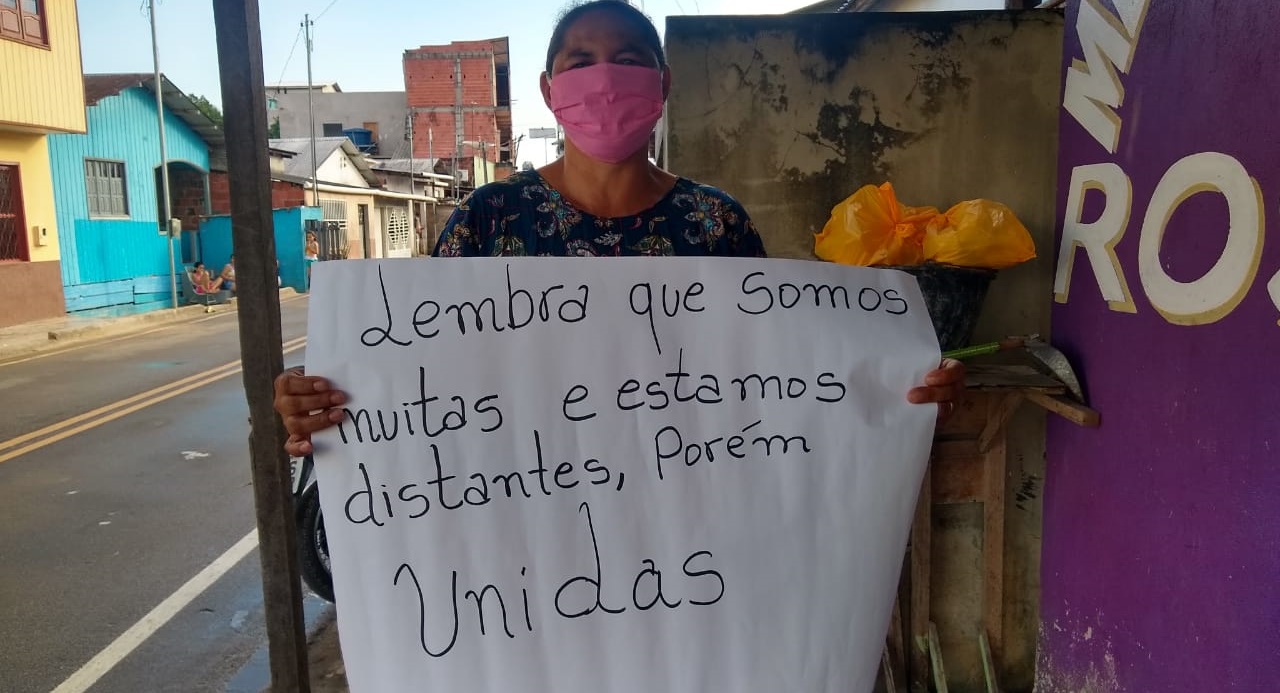 Lembra que Somos
muitas e estamos
distantes, Porém
Unidas
RO